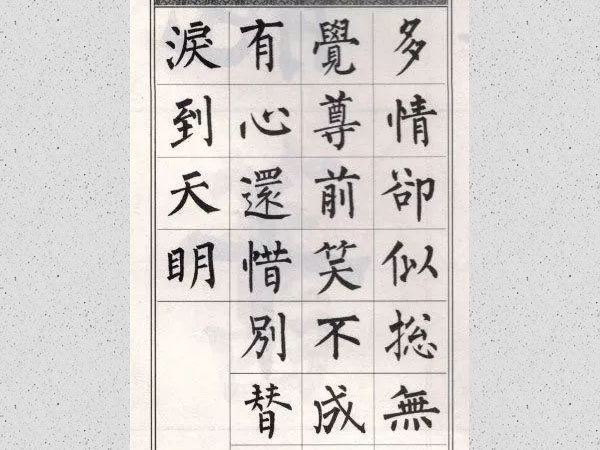 多情卻似捴無
覺尊前笑不成
有心還惜別替
淚到天眀